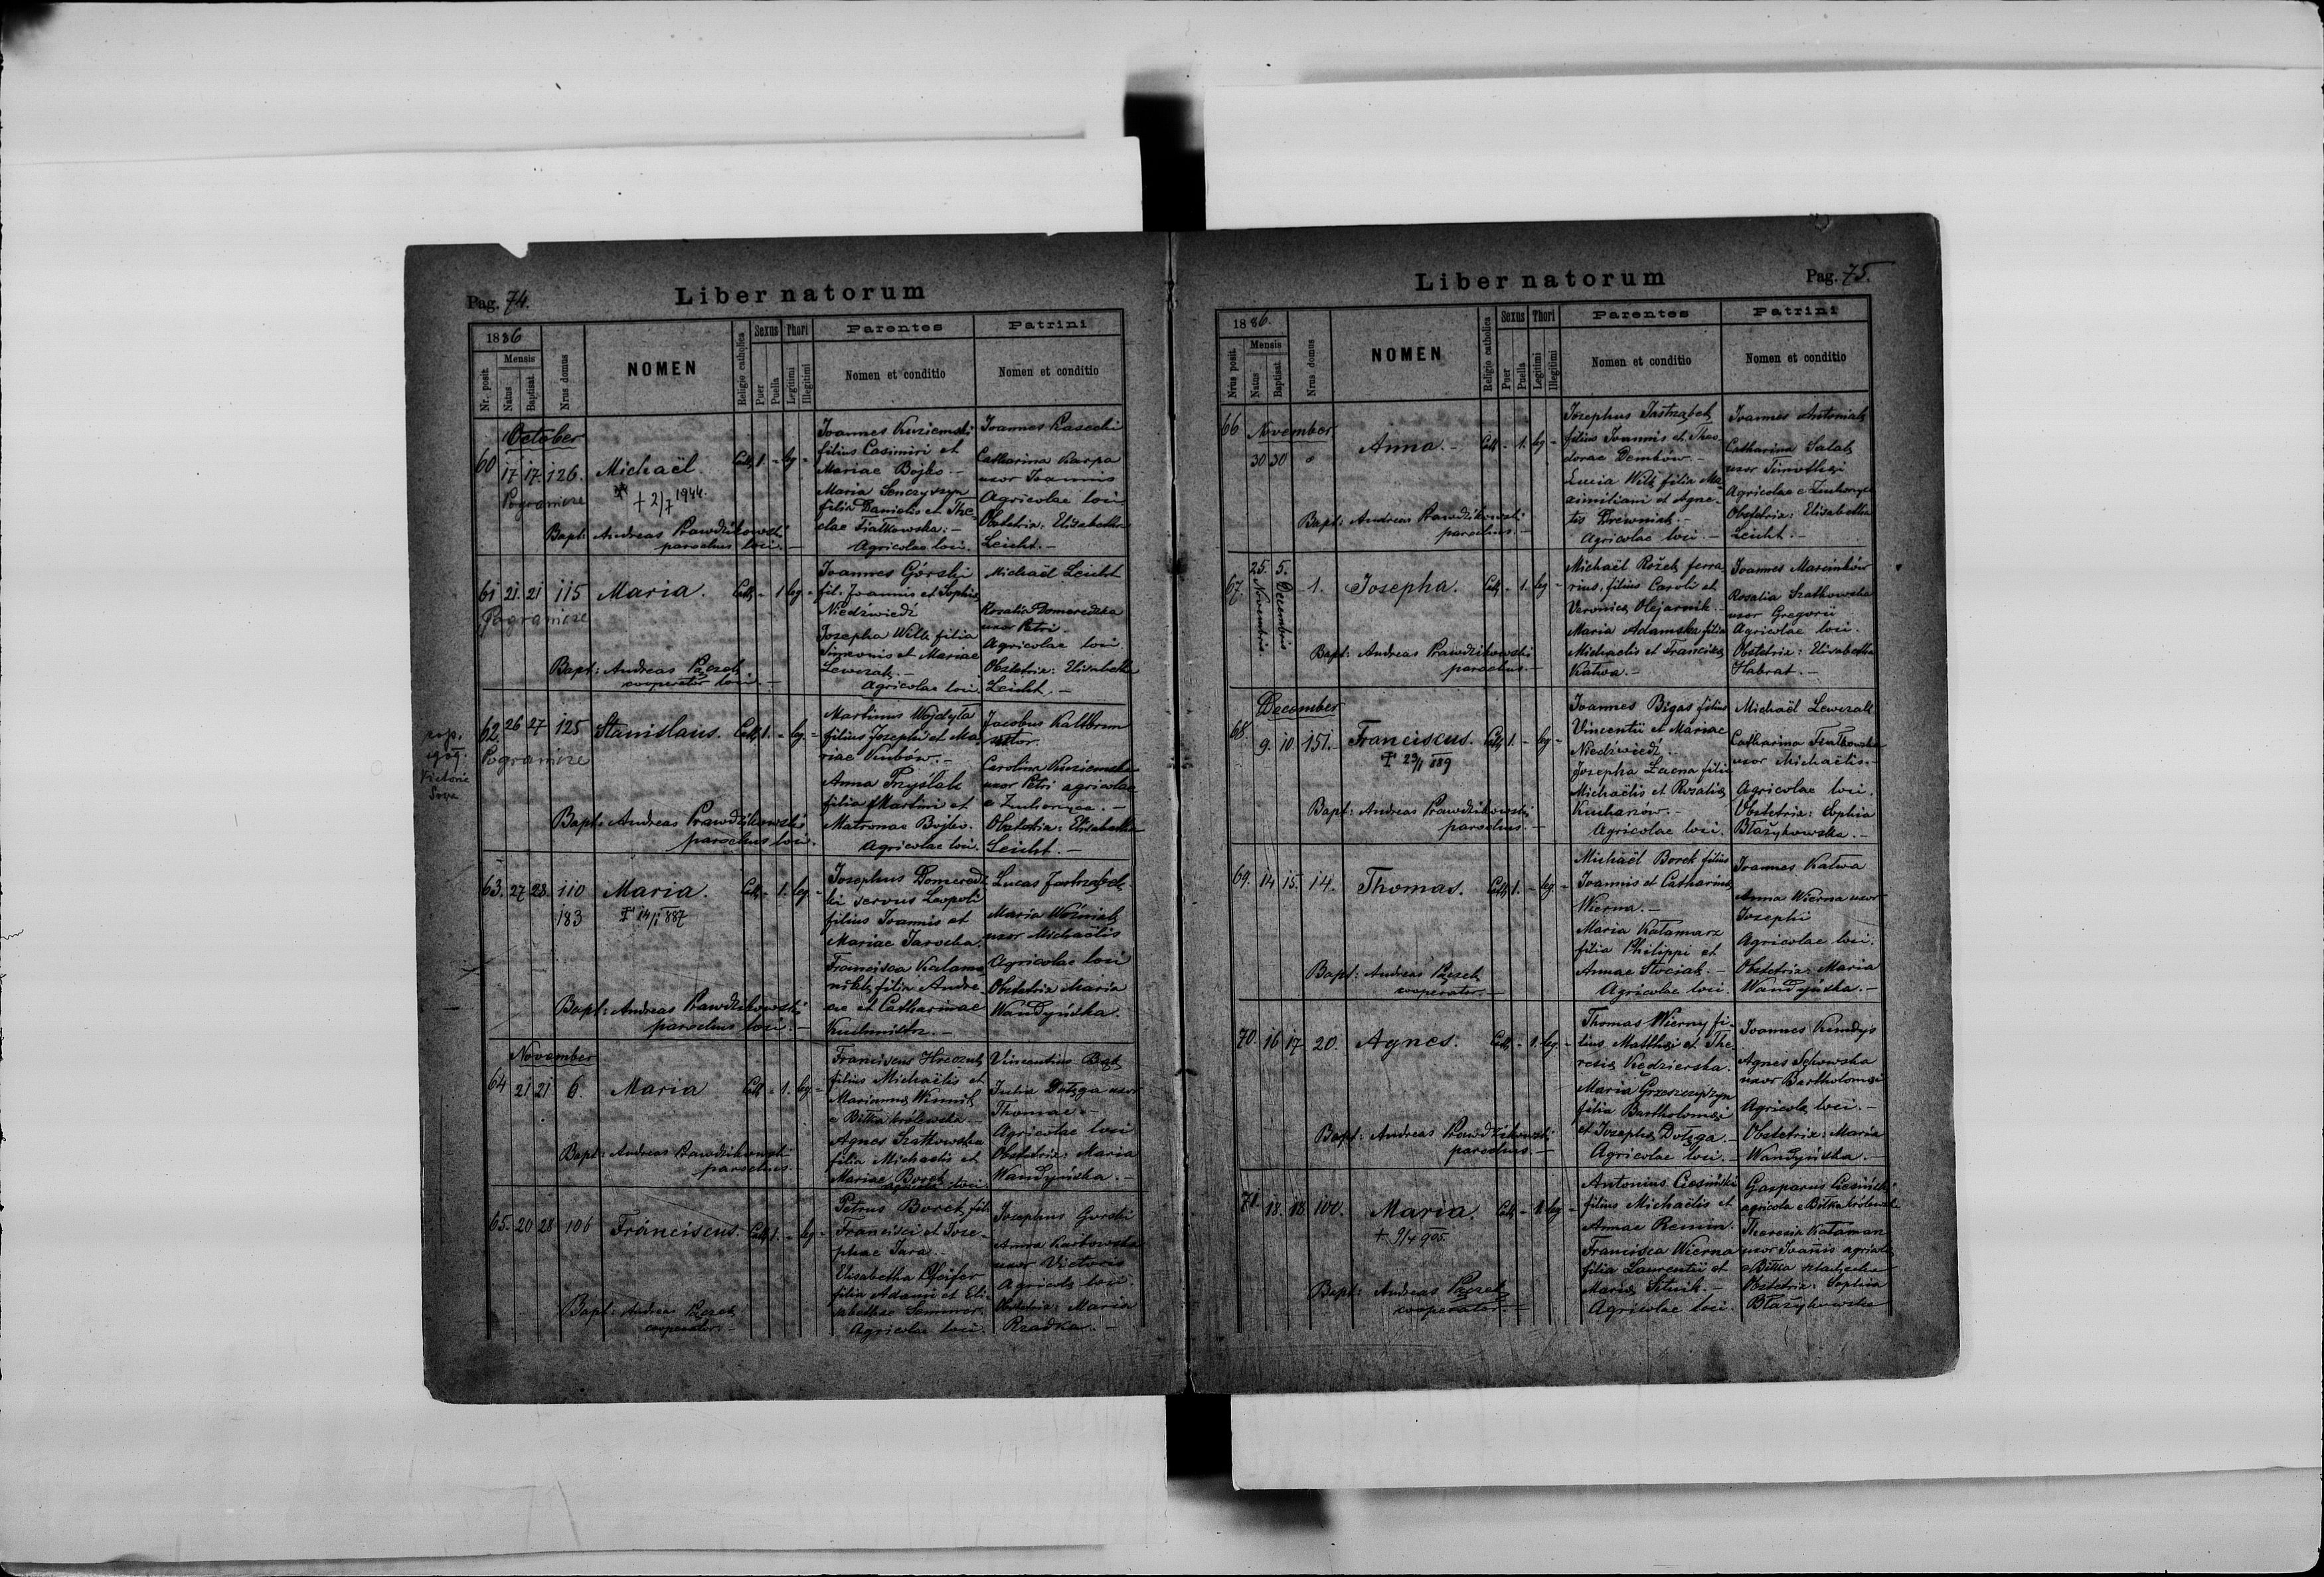 Pag. 74.
Liber natorum
1886
Nr. posit.
Mensis
Natus
Baptisat.
Nrus domus
NOMEN
Religio catholica
Sexus
Puer
Puella
Thori
Legitimi
Illegitimi
Parentes
Nomen et conditio
Patrini
Nomen et conditio
October
60 17 17. 126. Michaël. Cath 1 - leg -
Pogranicze
+ 2/7 1944.
Bapt: Andreas Prawdzikowski
parochus loci. —
Joannes Kuziemski
filius Casimiri et
Mariae Bojko —
Maria Senczyszyn
filia Danielis et The
clae Fiałkowska. —
Agricolae loci.
Joannes Kasecki
Catharina Karpa
uxor Joannis
Agricolae loci
Obstetrix: Elisabetha
Leicht. —
61 21. 21 115 Maria. Cath - 1 leg -
Pogranicze
Bapt: Andreas
cooperator loci. —
Joannes Górski
fil. Joannis et Sophiae
Niedźwiedź
Josepha Wilk filia
Simeonis et Mariae
Lewczak. —
Agricolae loci.
Michaël Leicht
Rosalia Domeredzka
uxor Petri
Agricolae loci
Obstetrix: Elisabetha
Leicht. —
62. 26 27 125 Stanislaus. Cath 1. - leg. -
Pogranicze
Victoria
Bapt: Andreas Prawdzikowski
parochus loci.
Martinus Wojdyła
filius Josephi et Ma
riae Kubów. —
Anna Przyślak
filia Martini et
Matronae Bojko.
Agricolae loci.
Jacobus Kaltbrun
sutor.
Carolina Kuziemska
uxor Petri agricolae
e Zuchorzyce. —
Obstetrix: Elisabetha
Leicht. —
63. 27 28. 110 Maria. Cath - 1. leg. -
183 + 14/1 887
Bapt: Andreas Prawdzikowski
parochus loci. —
Josephus Domeredz
ki servus Leopoli
filius Joannis et
Mariae Jarocha.
Francisca
filia Andre
ae et Catharinae
Lucas Jastrzębek
Maria Woźniak
uxor Michaëlis
Agricolae loci
Obstetrix Maria
Wandyńska.
November
64 21 21 6. Maria Cath - 1. leg -
Bapt: Andreas Prawdzikowski
parochus —
Franciscus Hreczuk
filius Michaëlis et
Mariannae
e Biłka królewska —
Agnes Szatkowska
filia Michaelis et
Mariae Borek
Agricolae loci.
Vincentius Bąk
Julia Dołęga uxor
Thomae. —
Agricolae loci
Obstetrix: Maria
Wandyńska. —
65. 20 28 106 Franciscus. Cath 1. - leg -
Bapt: Andreas
cooperator —
Petrus Borek fil.
Francisci et Jose-
phae Jara. —
Elisabetha Pfeifer
filia Adami et Eli-
sabethae Sommer.
Agricolae loci.
Josephus Gorski
Anna Karbowska
uxor Victoris
Agricolae loci.
Obstetrix: Maria
Rzadka. —
Liber natorum
Pag. 75.
1886.
Nrus posit.
Mensis
Natus
Baptisat.
Nrus domus
NOMEN
Religio catholica
Sexus
Puer
Puella
Thori
Legitimi
Illegitimi
Parentes
Nomen et conditio
Patrini
Nomen et conditio
66 November
30 30 Anna. — Cath - 1. leg -
Bapt: Andreas Prawdzikowski
parochus. —
Josephus Jastrząbek
filius Joannis et Theo
dorae Dembów. —
Lucia Wilk filia Ma
ximiliani et Agne-
tis Drewniak. —
Agricolae loci. —
Joannes Antoniak
Catharina Sałak
uxor Timothei
Agricolae e Zuchorzyce
Obstetrix: Elisabetha
Leicht. —
67. 25. Novembris 5. Decembris 1. Josepha. Cath - 1. leg -
Bapt: Andreas Prawdzikowski
parochus. —
Michaël Rożek ferra
rius, filius Caroli et
Veronicae Olejarnik. —
Maria Adamska filia
Michaelis et Franciscae
Katwa. —
Joannes Marcinków
Rosalia Szatkowska
uxor Gregorii
Agricolae loci.
Obstetrix: Elisabetha
Habrat. —
December
68. 9. 10 151. Franciscus. Cath 1. - leg -
+ 29/1 889
Bapt: Andreas Prawdzikowski
parochus. —
Joannes Bigas filius
Vincentii et Mariae
Niedźwiedź.
Josepha Łucna filia
Michaëlis et Rosaliae
Kucharzów. —
Agricolae loci.
Michaël Lewczak
Catharina Fiałkowska
uxor Michaëlis. —
Agricolae loci.
Obstetrix: Sophia
Błażykowska. —
69. 14 15. 14. Thomas. Cath 1. - leg. -
Bapt: Andreas
cooperator. —
Michaël Borek filius
Joannis et Catharinae
Wierna. —
Maria Katamarz
filia Philippi et
Annae Stociak. —
Agricolae loci.
Joannes Katwa
Anna Wierna uxor
Josephi
Agricolae loci.
Obstetrix: Maria
Wandyńska. —
70. 16 17 20. Agnes. Cath - 1. leg. -
Bapt: Andreas Prawdzikowski
parochus. —
Thomas Wierny fi-
lius Matthaei et The
resiae Kędzierska.
Maria Grzeszczyszyn
filia Bartholomaei
et Josephae Dołęga. —
Agricolae loci. —
Joannes Kundys
Agnes Sękowska
uxor Bartholomaei
Agricolae loci. —
Obstetrix: Maria
Wandyńska. —
71. 18. 18. 100. Maria. Cath - 1. leg -
+ 9/4 905
Bapt: Andreas
cooperator. —
Antonius Ciesiński
filius Michaëlis et
Annae Remin.
Francisca Wierna
filia Laurentii et
Mariae Sitnik. —
Agricolae loci.
Gasparus Ciesiński
agricola e Biłka królewska
Theresia Kataman
uxor Joannis agricolae
e Biłka szlachecka
Obstetrix: Sophia
Błażykowska